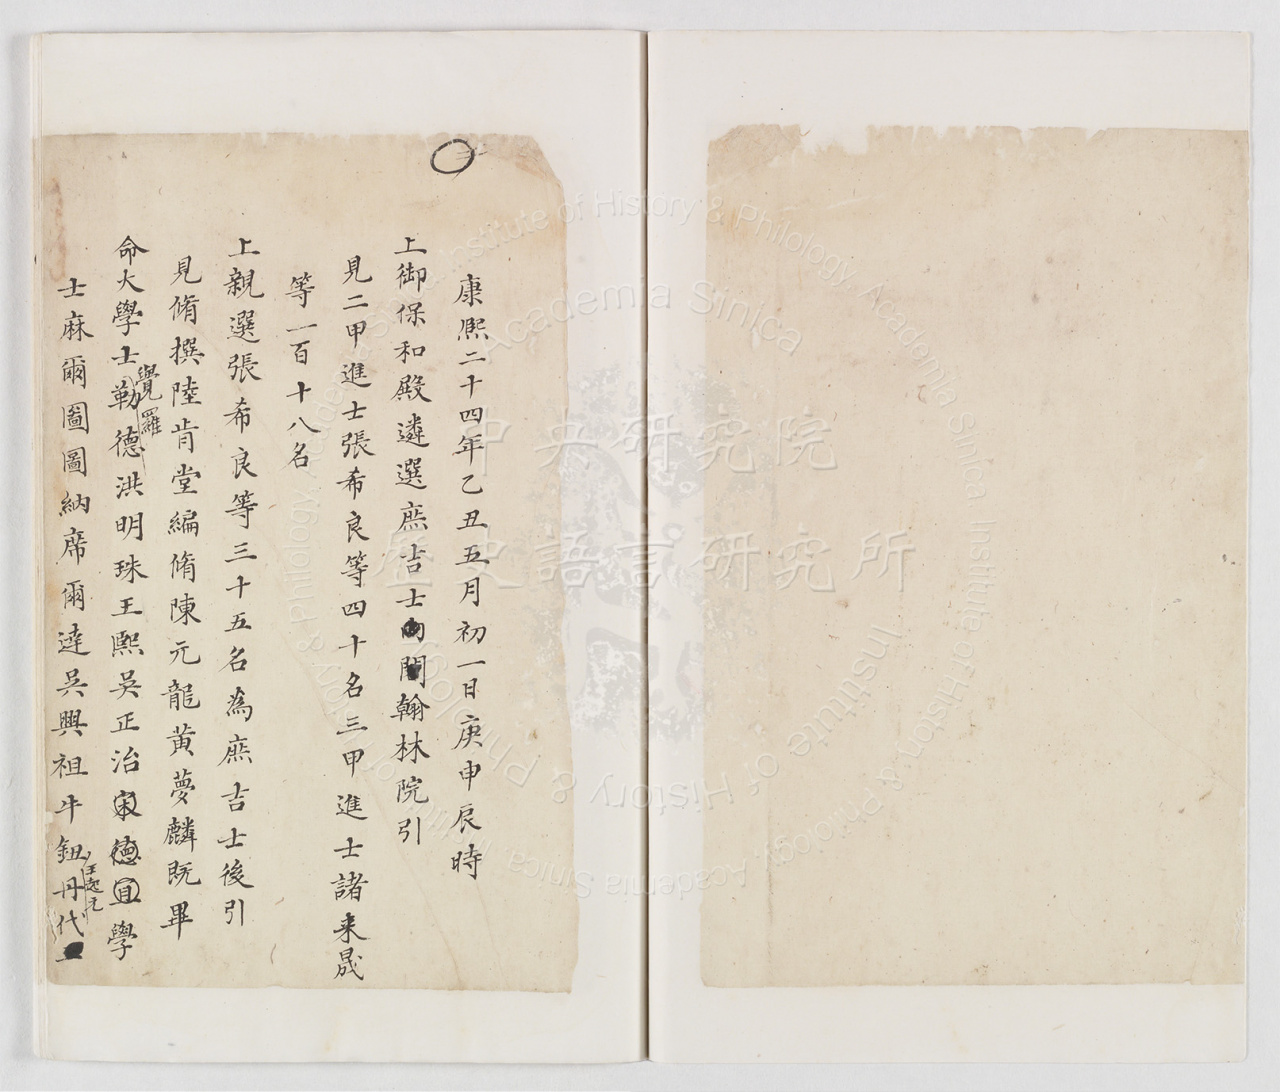 康熙二十四年乙丑五月初一日庚申辰時
上御保和殿遴選庶吉士翰林院引
見二甲進士張希良等四十名三甲進士諸来晟
等一百十八名
上親選張希良等三十五名為庶吉士後引
見脩撰陸肯堂編脩陳元龍黄夢麟既畢
命大學士覺羅勒德洪明珠王熙吳正治宋德宜學
士麻爾圖圖納席爾達吳興祖牛鈕丹代汪起元
中央研究院
歷史語言研究所
Institute of History & Philology, Academia Sinica